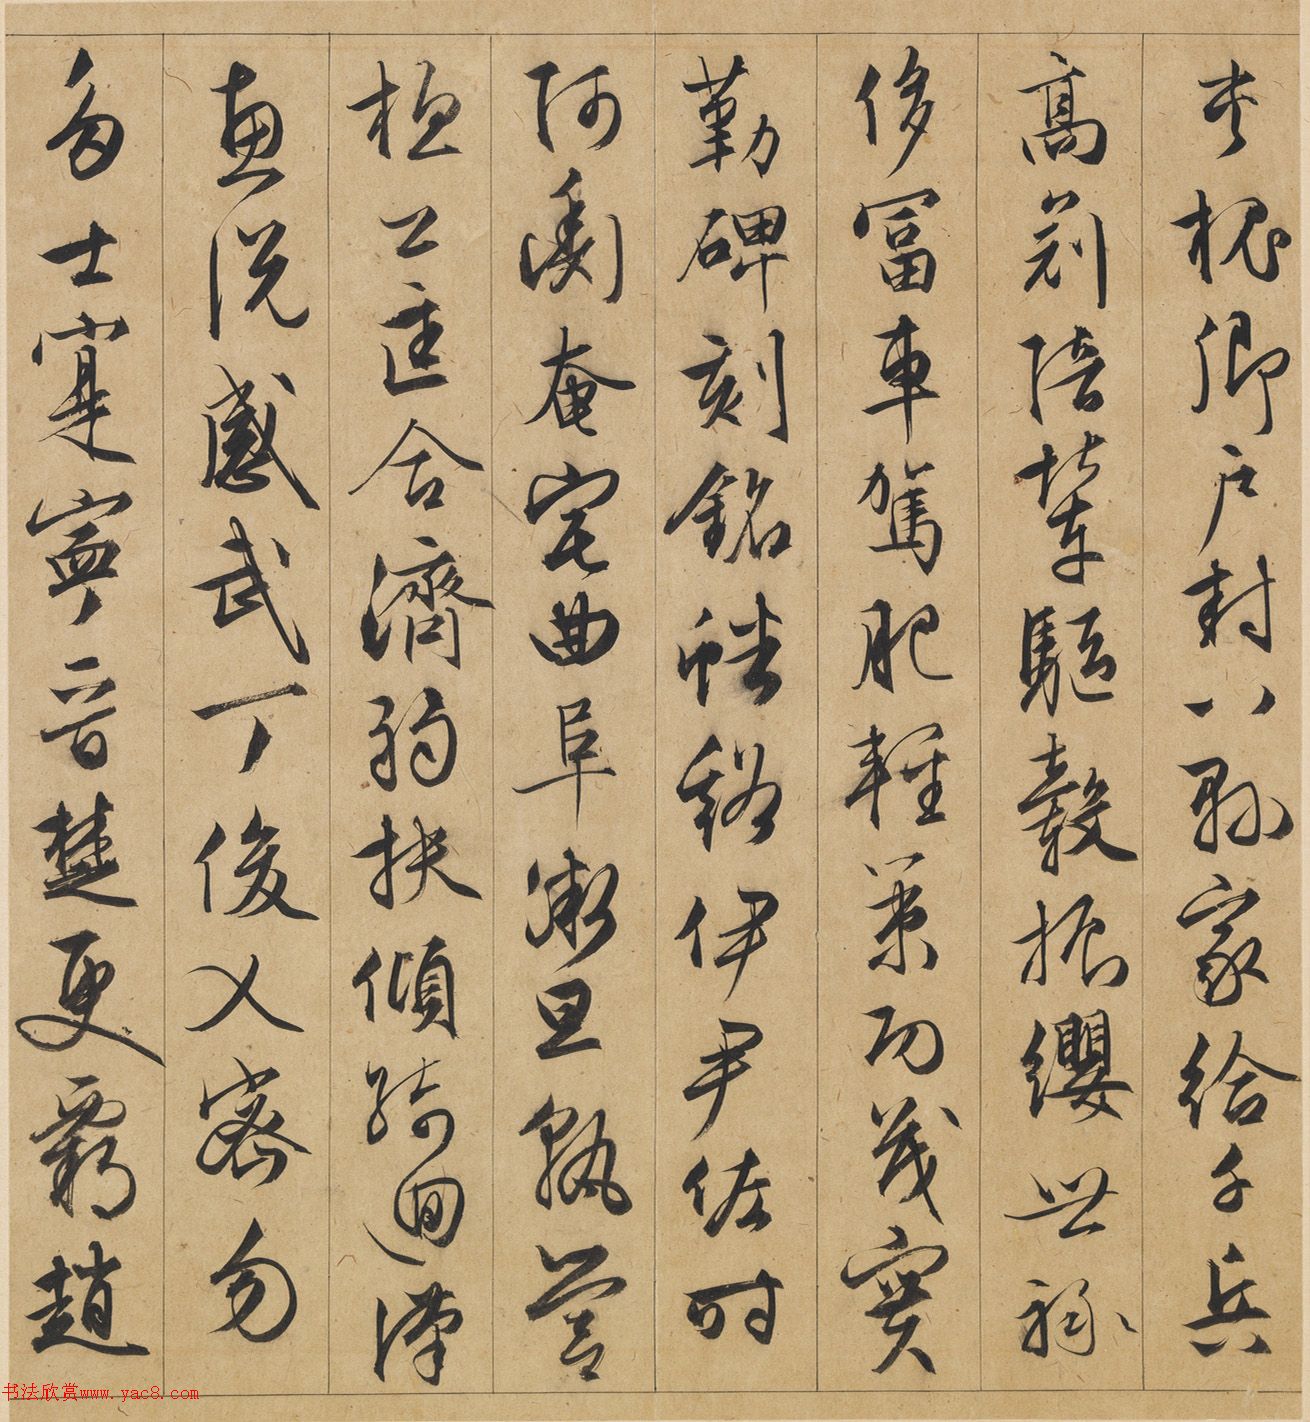 夾槐卿户封八縣家給千兵
高冠陪輦驅轂振纓世祿
侈富車駕肥輕策功茂實
勒碑刻銘磻谿伊尹佐時
阿衡奄宅曲阜微旦孰營
桓公匡合濟弱扶傾綺迴漢
惠說感武丁俊乂密勿
多士寔寧晉楚更霸趙
书法欣赏www.yac8.com